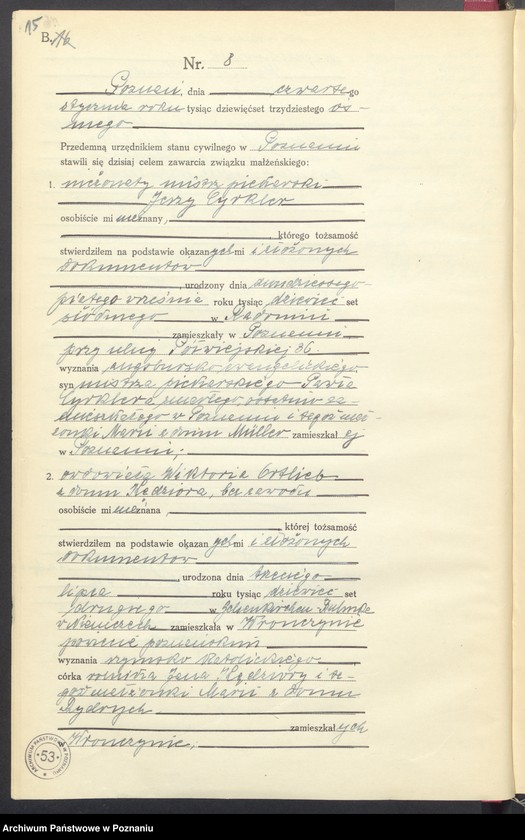 15
B.
Nr. 8
Poznań, dnia czwartego
stycznia roku tysiąc dziewięćset trzydziestego ós-
mego
Przedemną urzędnikiem stanu cywilnego w Poznaniu
stawili się dzisiaj celem zawarcia związku małżeńskiego:
1. nieżonaty mistrz piekarski
Jerzy Cyrkler
osobiście mi nieznany,
którego tożsamość
stwierdziłem na podstawie okazanych mi i złożonych
dokumentów
urodzony dnia dwudziestego
piątego września roku tysiąc dziewięć set
siódmego w Radomiu
zamieszkały w Poznaniu
przy ulicy Półwiejskiej 36
wyznania augsbursko ewangelickiego
syn mistrza piekarskiego Pawła
Cyrklera zmarłego, ostatnio za-
mieszkałego w Poznaniu i tegoż mał-
żonki Marii z domu Müller zamieszkałej
w Poznaniu;
2. owdowiała Wiktoria Ortlieb
z domu Kędziora, bez zawodu
osobiście mi nieznana,
której tożsamość
stwierdziłem na podstawie okazanych mi i złożonych
dokumentów
, urodzona dnia trzeciego
lipca roku tysiąc dziewięć set
drugiego w Gelsenkirchen Bulmke
w Niemczech zamieszkała w Wronczynie
powiecie poznańskim
wyznania rzymsko katolickiego
córka rolnika Jana Kędziory i te-
goż małżonki Marii z domu
zamieszkałych
Wronczynie.
ARCHIWUM PAŃSTWOWE W POZNANIU
53
Archiwum Państwowe w Poznaniu